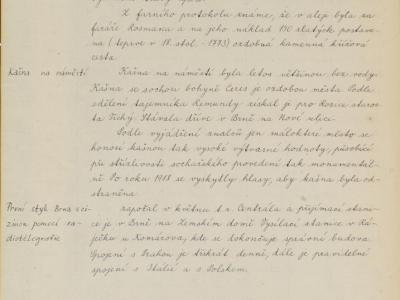 Z farního protokolu známe, že v aleji byla za
faráře Rosmana a na jeho náklad 190 zlatých postave-
na (teprve v 18. stol. - 1773) ozdobná kamenná křížová
cesta.
Kašna na náměstí
Kašna na náměstí byla letos většinou bez vody.
Kašna se sochou bohyně Ceres je ozdobou města. Podle
sdělení tajemníka Remundy získal ji pro Rosice staros-
ta Tichý. Stávala dříve v Brně na Nové ulici.
Podle vyjádření znalců jen málokteré město se
honosí kašnou tak vysoké výtvarné hodnoty, působící
při střízlivosti sochařského provedení tak monumentál-
ně. Po roku 1918 se vyskytly hlasy, aby kašna byla od-
straněna.
První styk Brna s ci-
zinou pomocí ra-
diotelegrafie
započal v květnu t. r. Centrála a přijímací stani-
ce je v Brně na Zemském domě. Vysílací stanice v Rá-
ječku u Komárova, kde se dokončuje správní budova.
Spojení s Prahou je třikrát denně, dále je pravidelné
spojení s Italií a s Polskem.